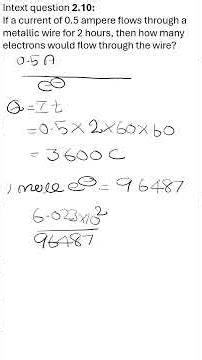 Intext question 2.10:
If a current of 0.5 ampere flows through a
metallic wire for 2 hours, then how many
electrons would flow through the wire?
0.5 A
e⊖
Q = I t
= 0.5 × 2 × 60 × 60
= 3600 C
1 mole e⊖ = 96487
6.023×10²
96487